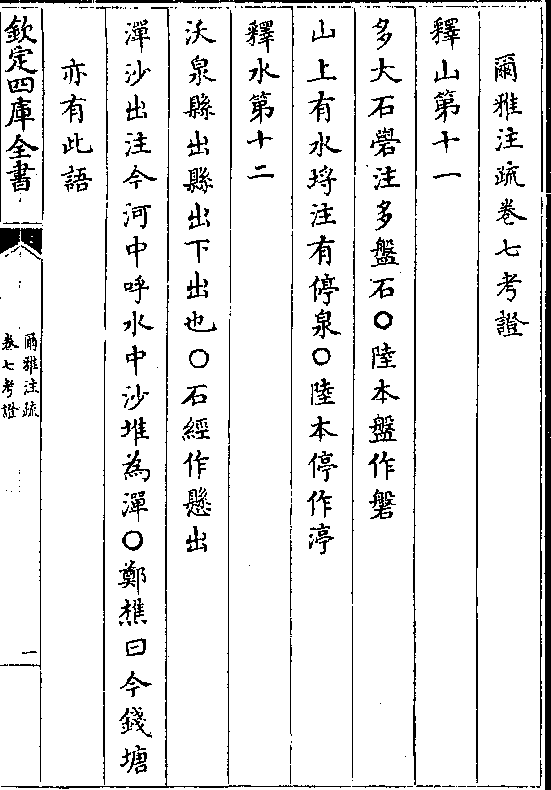 爾雅注疏卷七考證
釋山第十一
多大石礐注多盤石○陸本盤作磐
山上有水埒注有停泉○陸本停作渟
釋水第十二
沃泉縣出縣出下出也○石經作懸出
潬沙出注今河中呼水中沙堆為潬○鄭樵曰今錢塘
亦有此語
欽定四庫全書
爾雅注疏
卷七考證
一